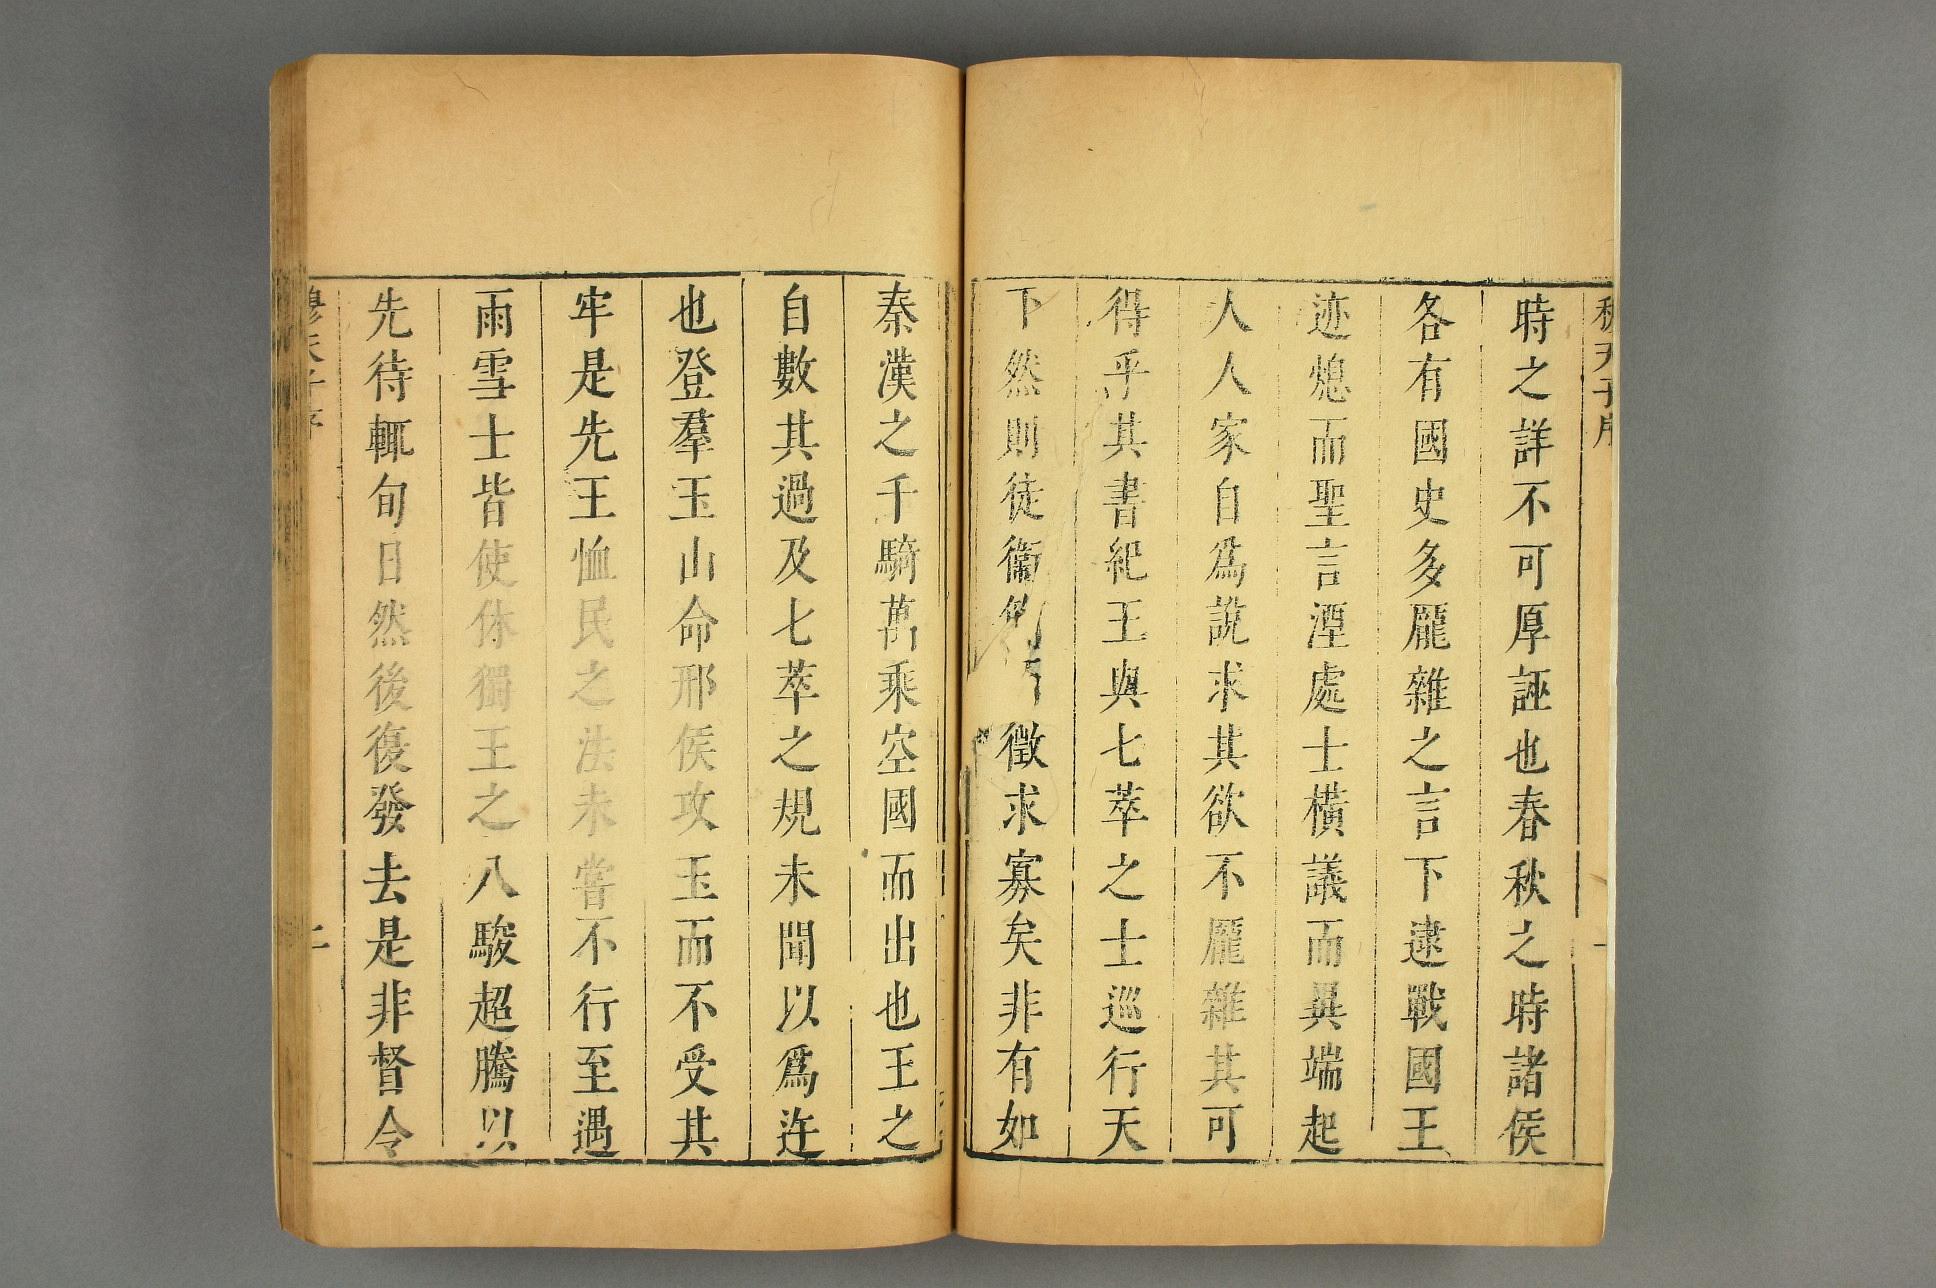 時之詳不可厚誣也春秋之時諸侯
各有國史多龐雜之言下逮戰國王
迹熄而聖言湮處士橫議而異端起
人人家自爲說求其欲不龐雜其可
得乎其書紀王與七萃之士巡行天
下然則徒衞簡而徵求寡矣非有如
秦漢之千騎萬乘空國而出也王之
自數其過及七萃之規未聞以爲迕
也登羣玉山命邢侯攻玉而不受其
牢是先王恤民之法未嘗不行至遇
雨雪士皆使休獨王之八駿超騰以
先待輒旬日然後復發去是非督令
穆天子序
二